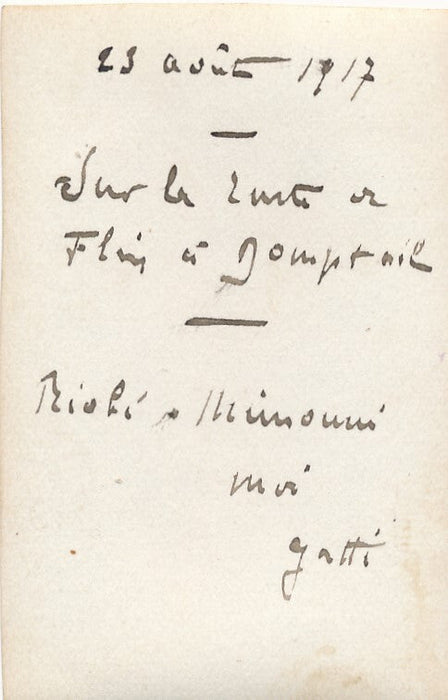 23 août 1917
Sur la route de
Flin à Domptail
Riobé Mimouni
moi
Gatti